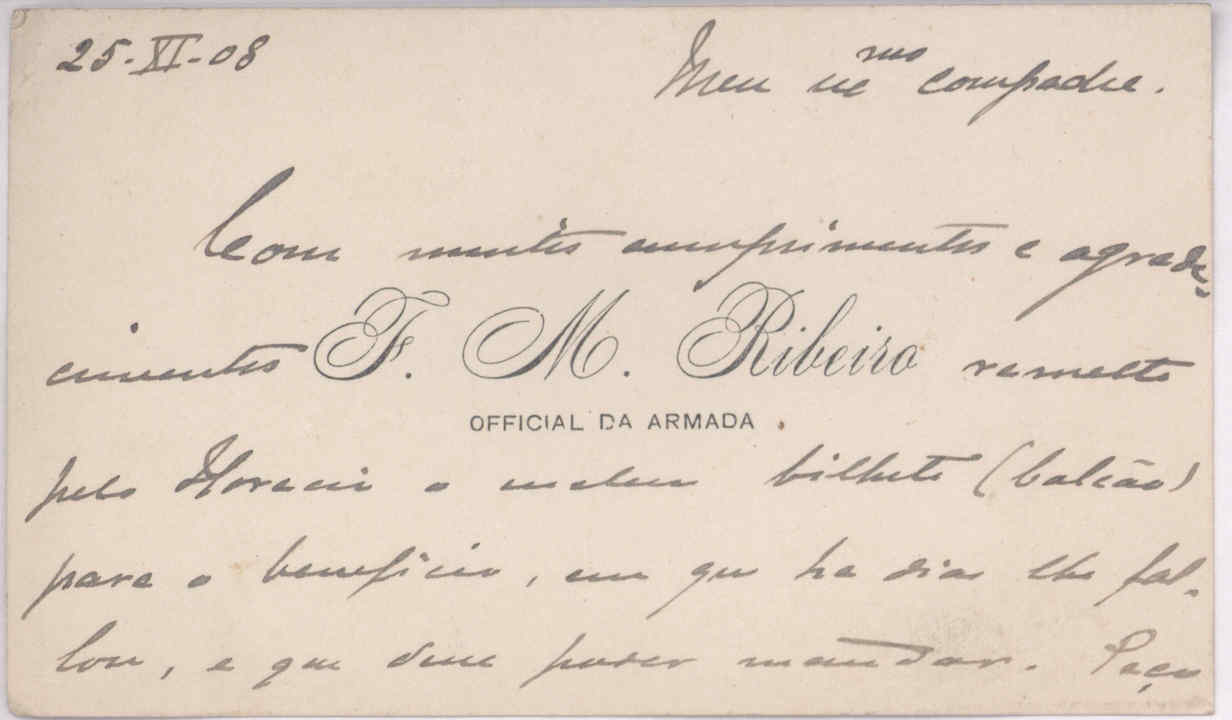 25-XI-08
Meu compadre.
Com muitos cumprimentos e agrade-
cimentos F. M. Ribeiro remetto
OFFICIAL DA ARMADA
pelo Horacio o bilhete (balcão)
para o beneficio, em que ha dias lhe fal-
lou, e que poder mandar. Peço